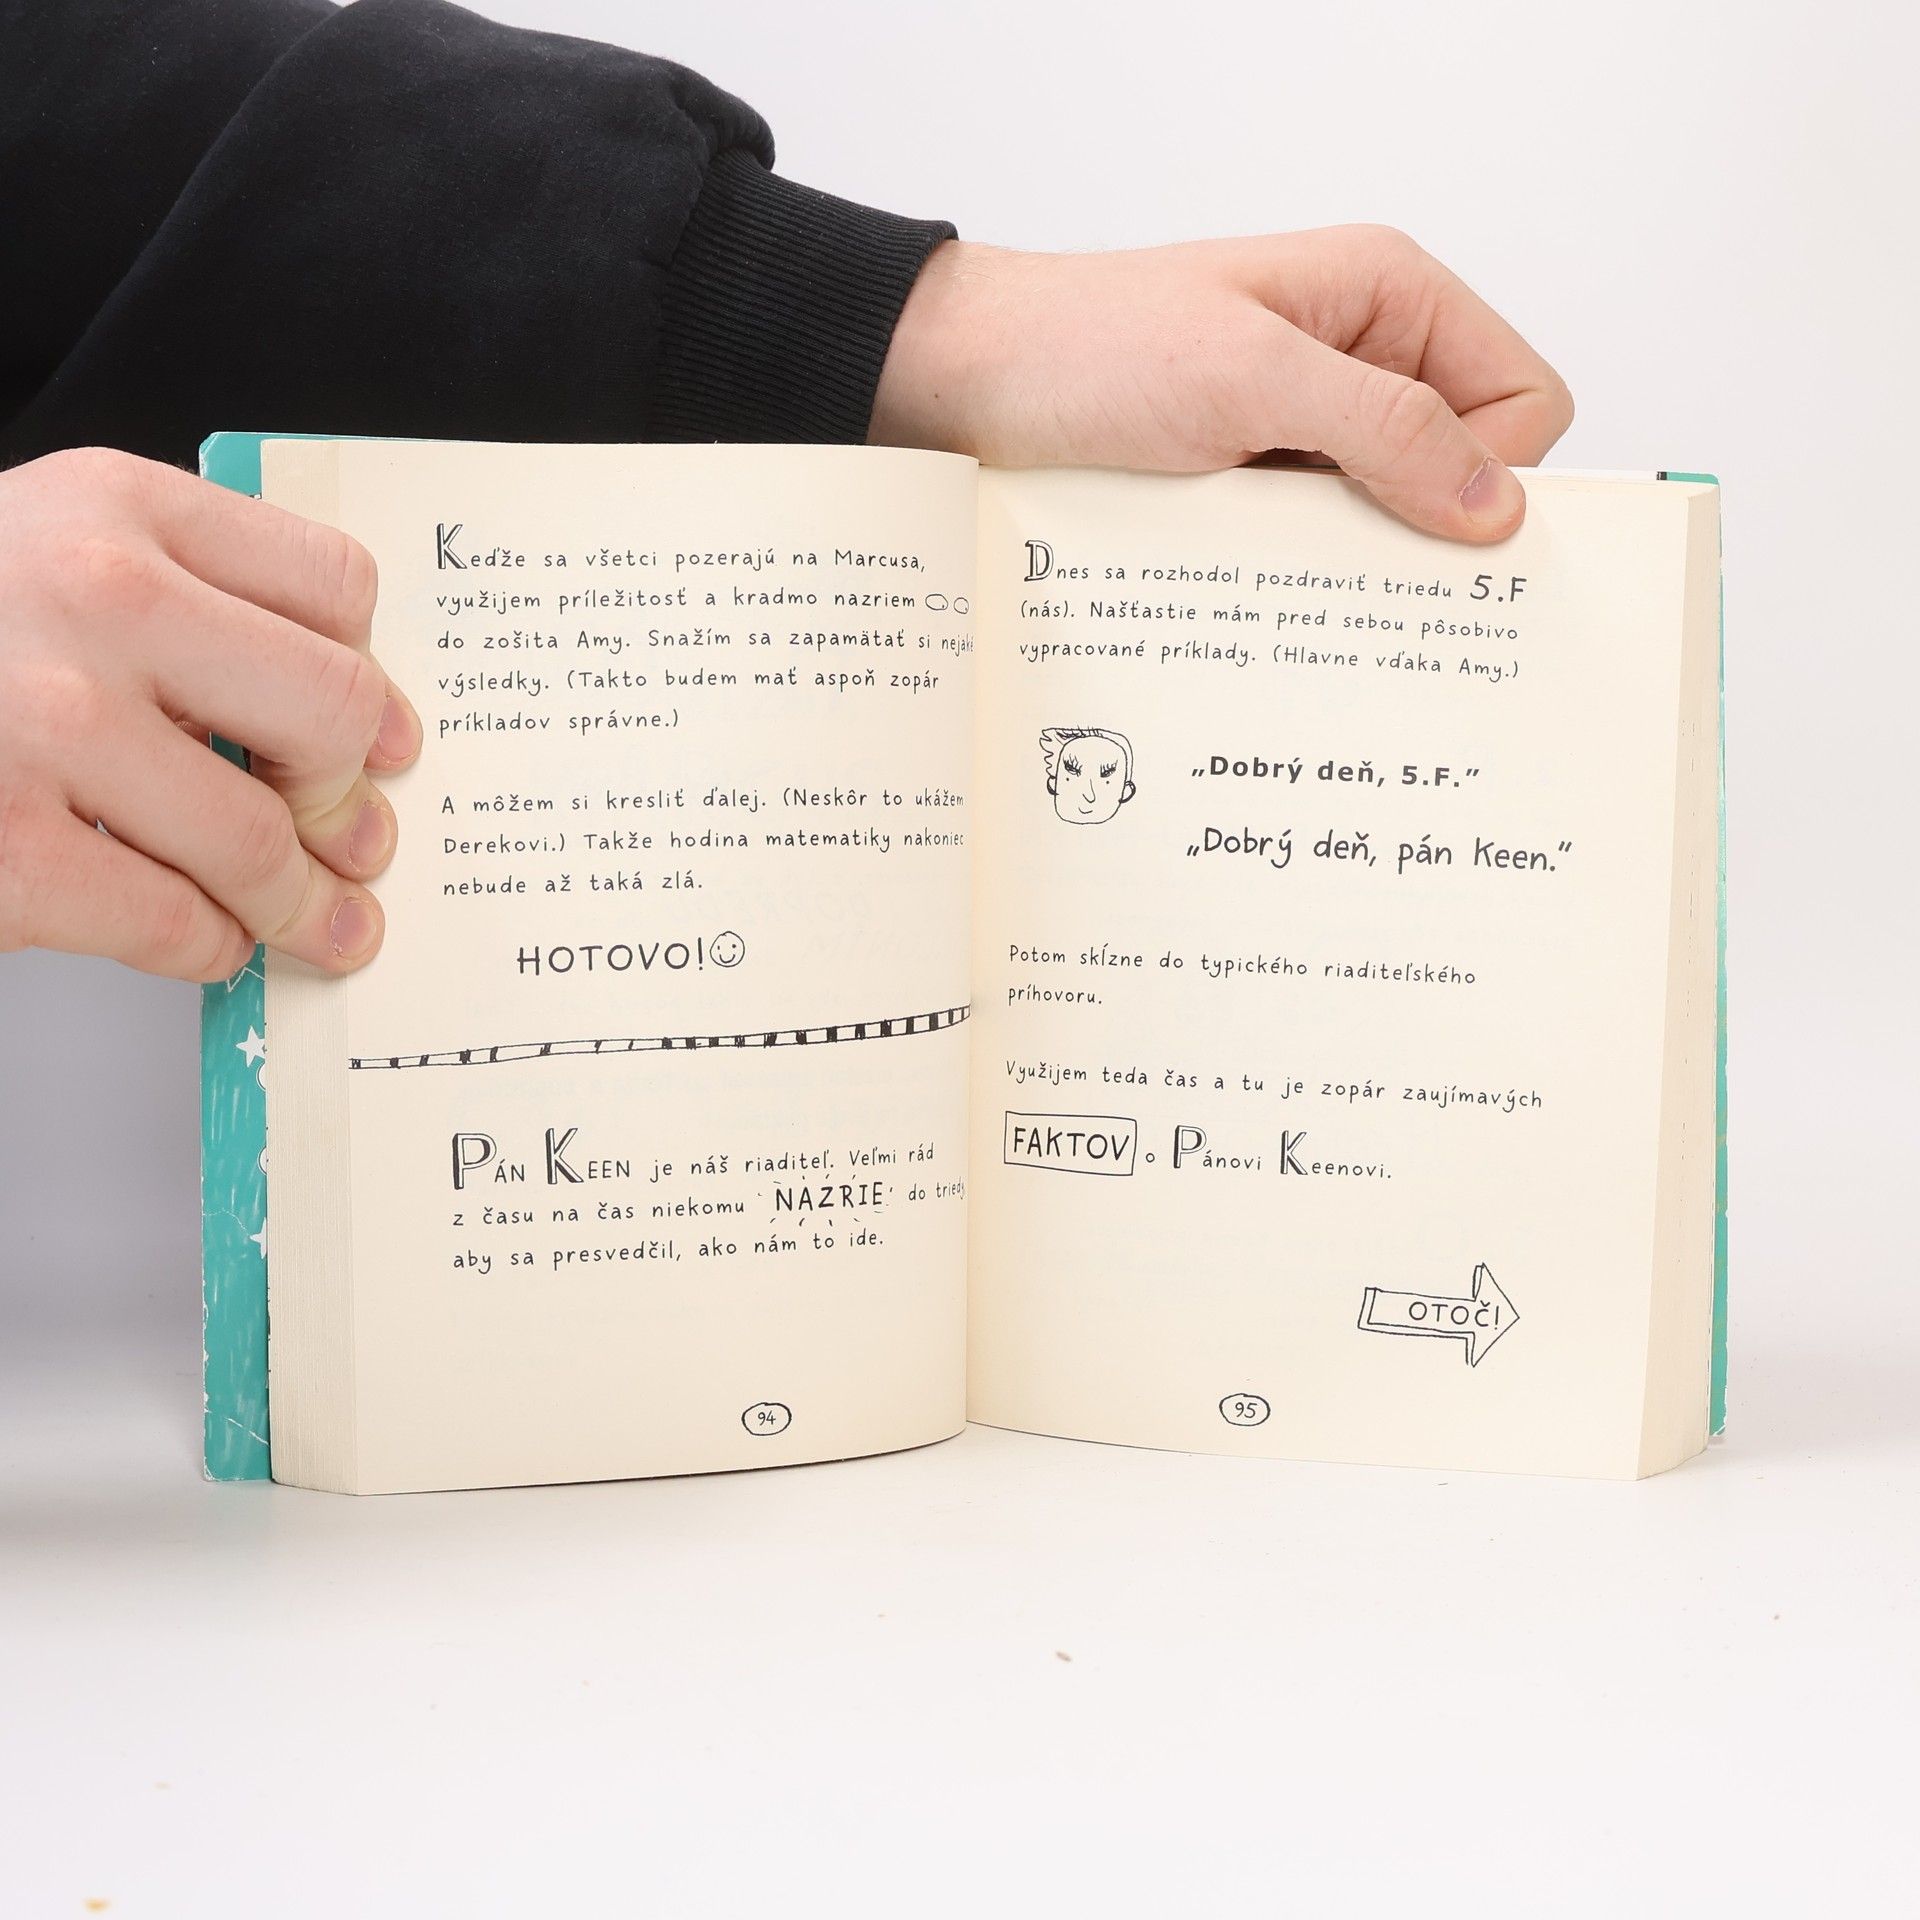 Keďže sa všetci pozerajú na Marcusa,
využijem príležitosť a kradmo nazriem
do zošita Amy. Snažím sa zapamätať si
výsledky. (Takto budem mať aspoň zopár
príkladov správne.)
A môžem si kresliť ďalej. (Neskôr to ukážem
Derekovi.) Takže hodina matematiky nakoniec
nebude až taká zlá.
HOTOVO!
PÁN KEEN je náš riaditeľ. Veľmi rád
z času na čas niekomu NAZRIE do triedy
aby sa presvedčil, ako nám to ide.
94
Dnes sa rozhodol pozdraviť triedu 5.F
(nás). Našťastie mám pred sebou pôsobivo
vypracované príklady. (Hlavne vďaka Amy.)
„Dobrý deň, 5.F.”
„Dobrý deň, pán Keen.”
Potom skĺzne do typického riaditeľského
príhovoru.
Využijem teda čas a tu je zopár zaujímavých
FAKTOV o Pánovi Keenovi.
OTOČ!
95